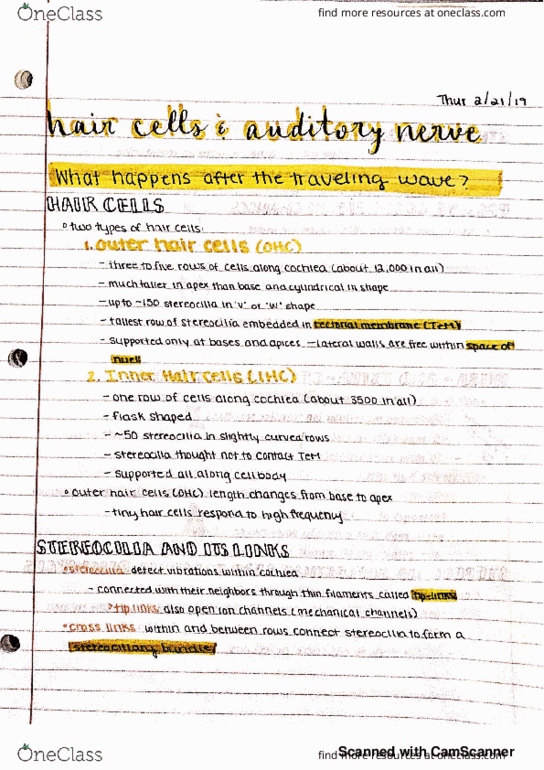 OneClass
find more resources at oneclass.com
Thur 2/21/19
hair cells & auditory nerve
What happens after the traveling wave?
HAIR CELLS
◦ two types of hair cells:
1. Outer hair cells (OHC)
- three to five rows of cells along cochlea (about 12,000 in all)
- much taller in apex than base and cylindrical in shape
- up to ~150 stereocilia in 'v' or 'w' shape
- tallest row of stereocilia embedded in tectorial membrane (TeM)
- supported only at bases and apices - lateral walls are free within space of
nuel
2. Inner Hair cells (IHC)
- one row of cells along cochlea (about 3500 in all)
- flask shaped
- ~50 stereocilia in slightly curved rows
- stereocilia thought not to contact TeM
- supported all along cell body
◦ outer hair cells (OHC) length changes from base to apex
- tiny hair cells respond to high frequency
STEREOCILIA AND ITS LINKS
◦ stereocilia detect vibrations within cochlea
- connected with their neighbors through thin filaments called tip links
* tip links also open ion channels (mechanical channels)
◦ cross links within and between rows connect stereocilia to form a
stereociliary bundle
OneClass
find more resources at oneclass.com
Scanned with CamScanner